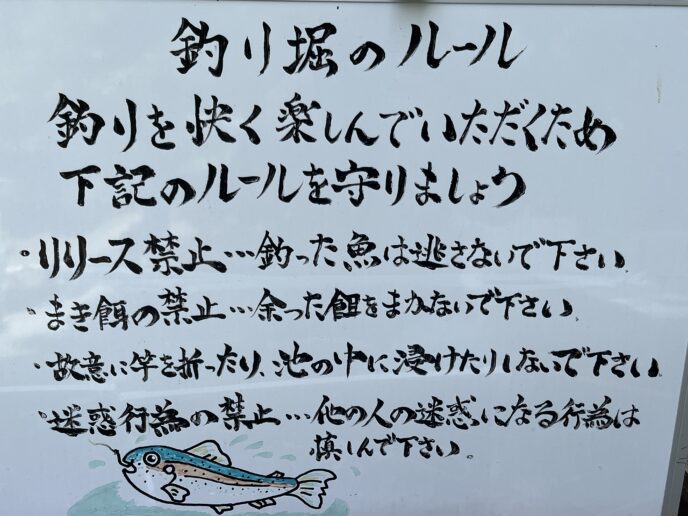 釣り堀のルール
釣りを快く楽しんでいただくため
下記のルールを守りましょう
・リリース禁止…釣った魚は逃さないで下さい。
・まき餌の禁止…余った餌をまかないで下さい。
・故意に竿を折ったり、池の中に浸けたりしないで下さい。
・迷惑行為の禁止…他の人の迷惑になる行為は
慎しんで下さい。